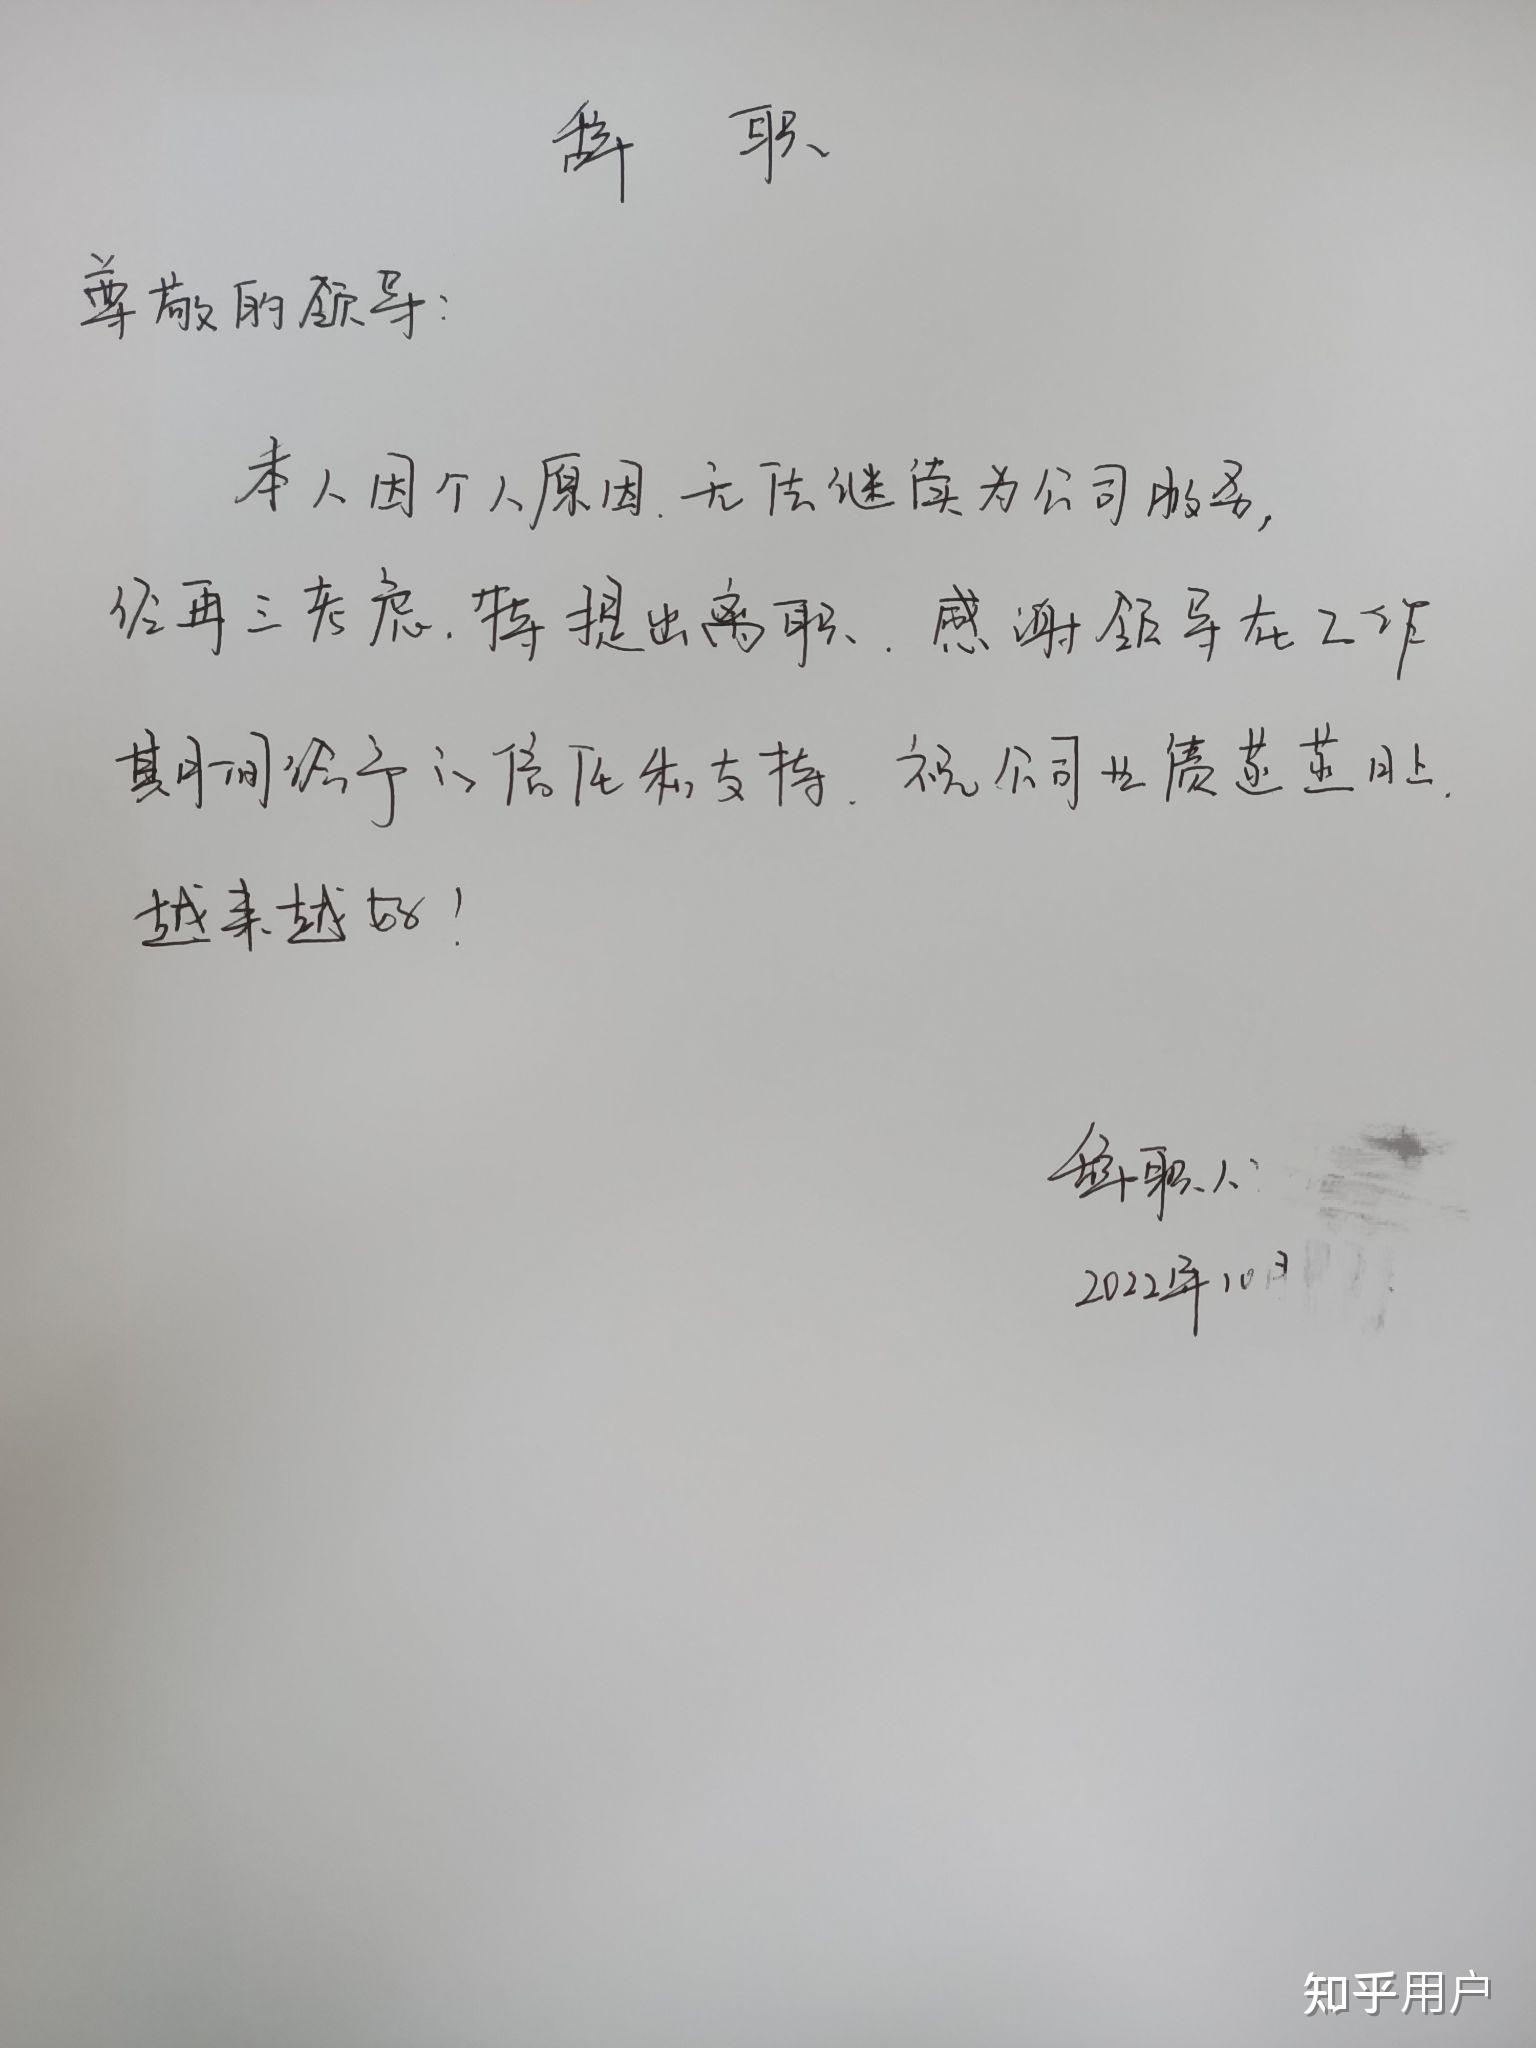 辞 职
尊敬的领导：
本人因个人原因.无法继续为公司服务，
经再三考虑.特提出离职.感谢领导在工作
期间给予的信任和支持.祝公司业绩蒸蒸日上.
越来越好！
辞职人：
2022年10月
知乎用户